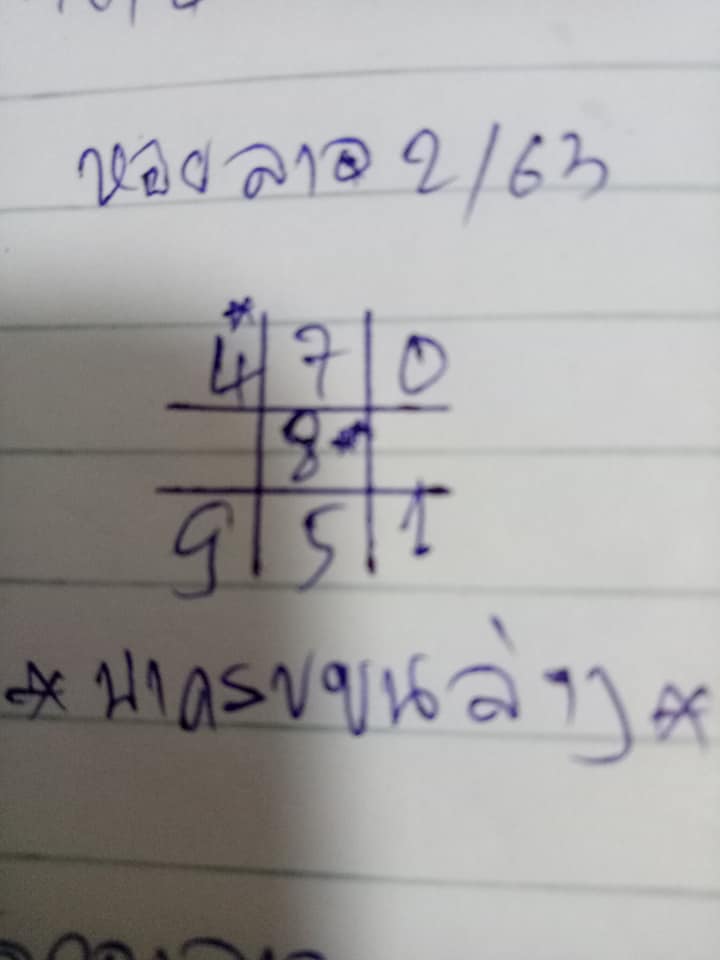 หอยลาว 2/63
4* 7 0
8*
9 5 1
*มาครบบนล่าง*